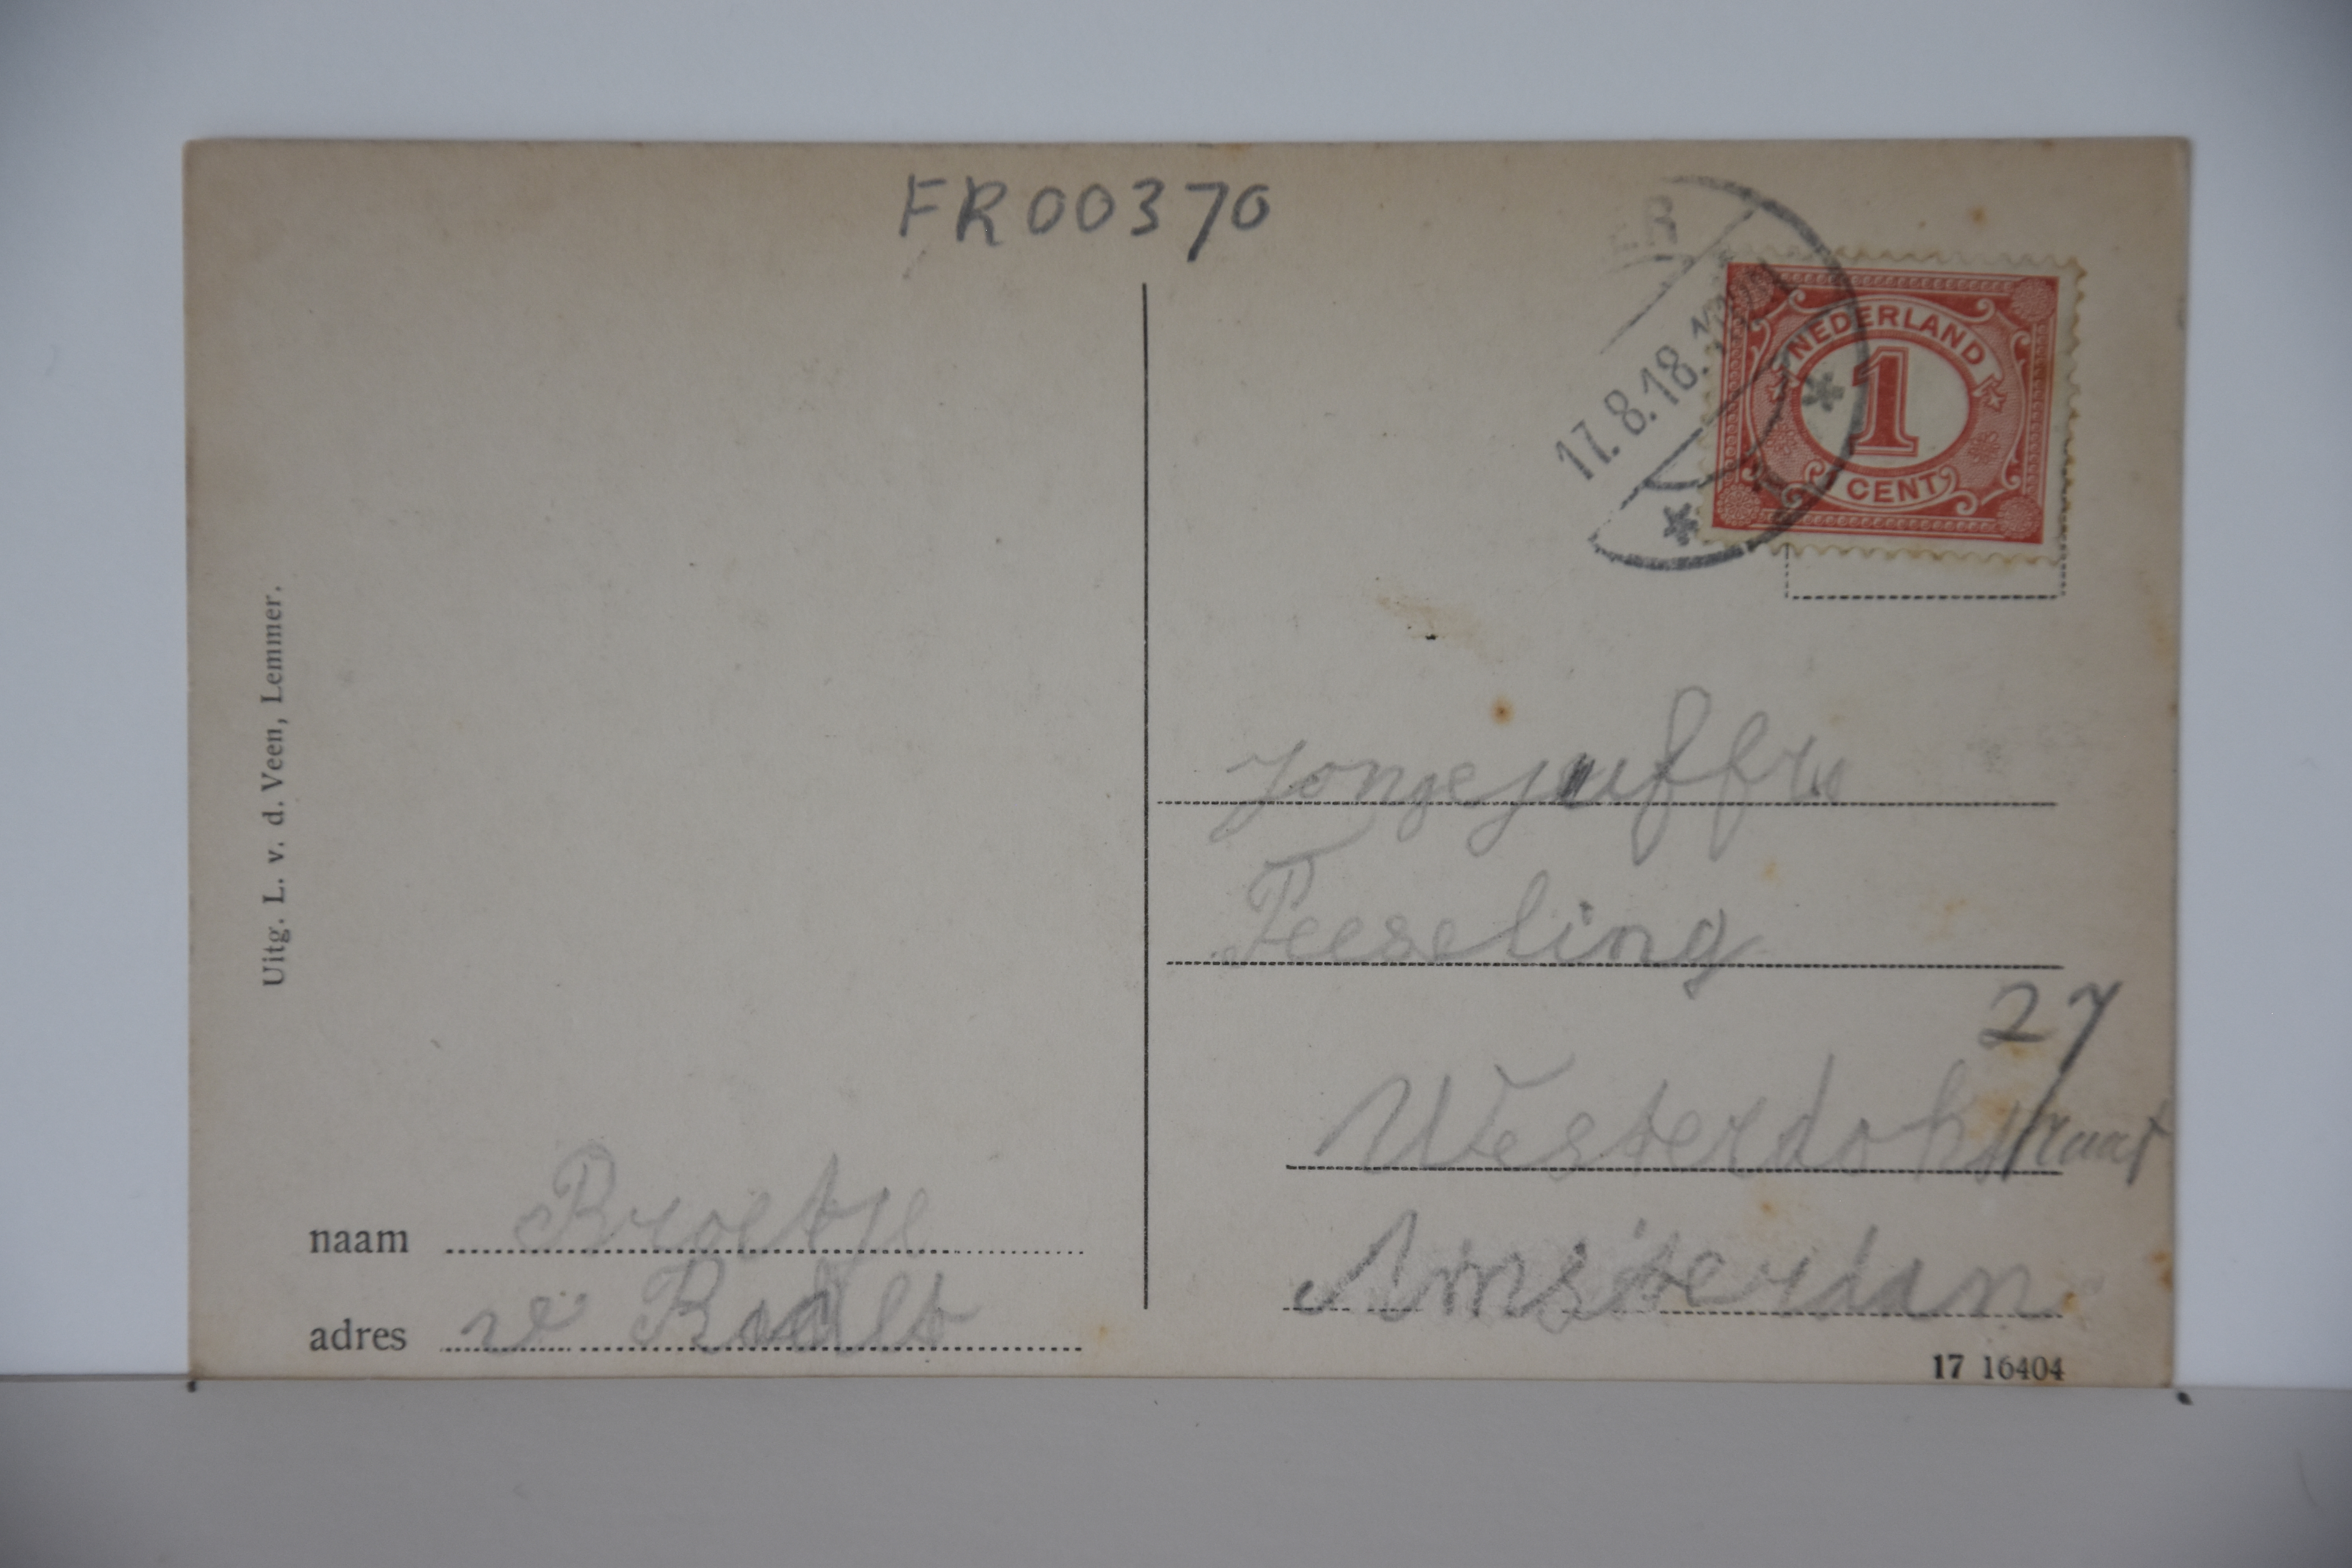 FR00370
ER
17.8.18.
NEDERLAND
1
CENT
Uitg. L. v. d. Veen, Lemmer.
Jongejuffr
Feeseling
27
Westerdokstraat
Amsterdam
naam Broetje
adres v
17 16404